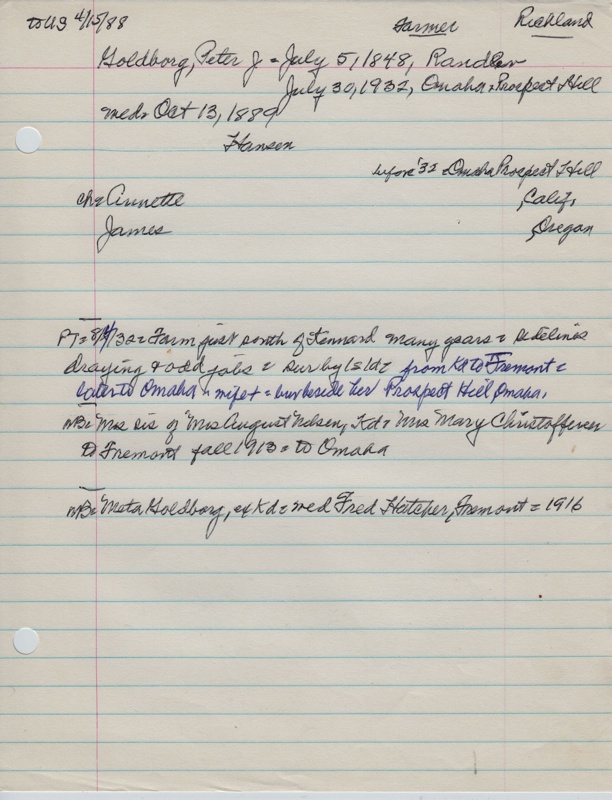 to US 4/15/88 Farmer Richland
Goldborg, Peter J = July 5, 1848, Randers
July 30, 1932, Omaha = Prospect Hill
med = Oct 13, 1889
Hansen
before '32 = Omaha Prospect Hill
ch = Annette , Calif,
James , Oregon
PT = 8/4/32 = Farm just south of Kennard many years = sidelines
draying & odd jobs = sur by 1s 1d = from Kd to Fremont =
later to Omaha = bur beside her Prospect Hill Omaha.
Mrs sis of Mrs August Nelsen, Kd = Mrs Mary Christoffersen
to Fremont fall 1913 = to Omaha
Meta Goldborg, ex Kd = med Fred Hatcher, Fremont = 1916